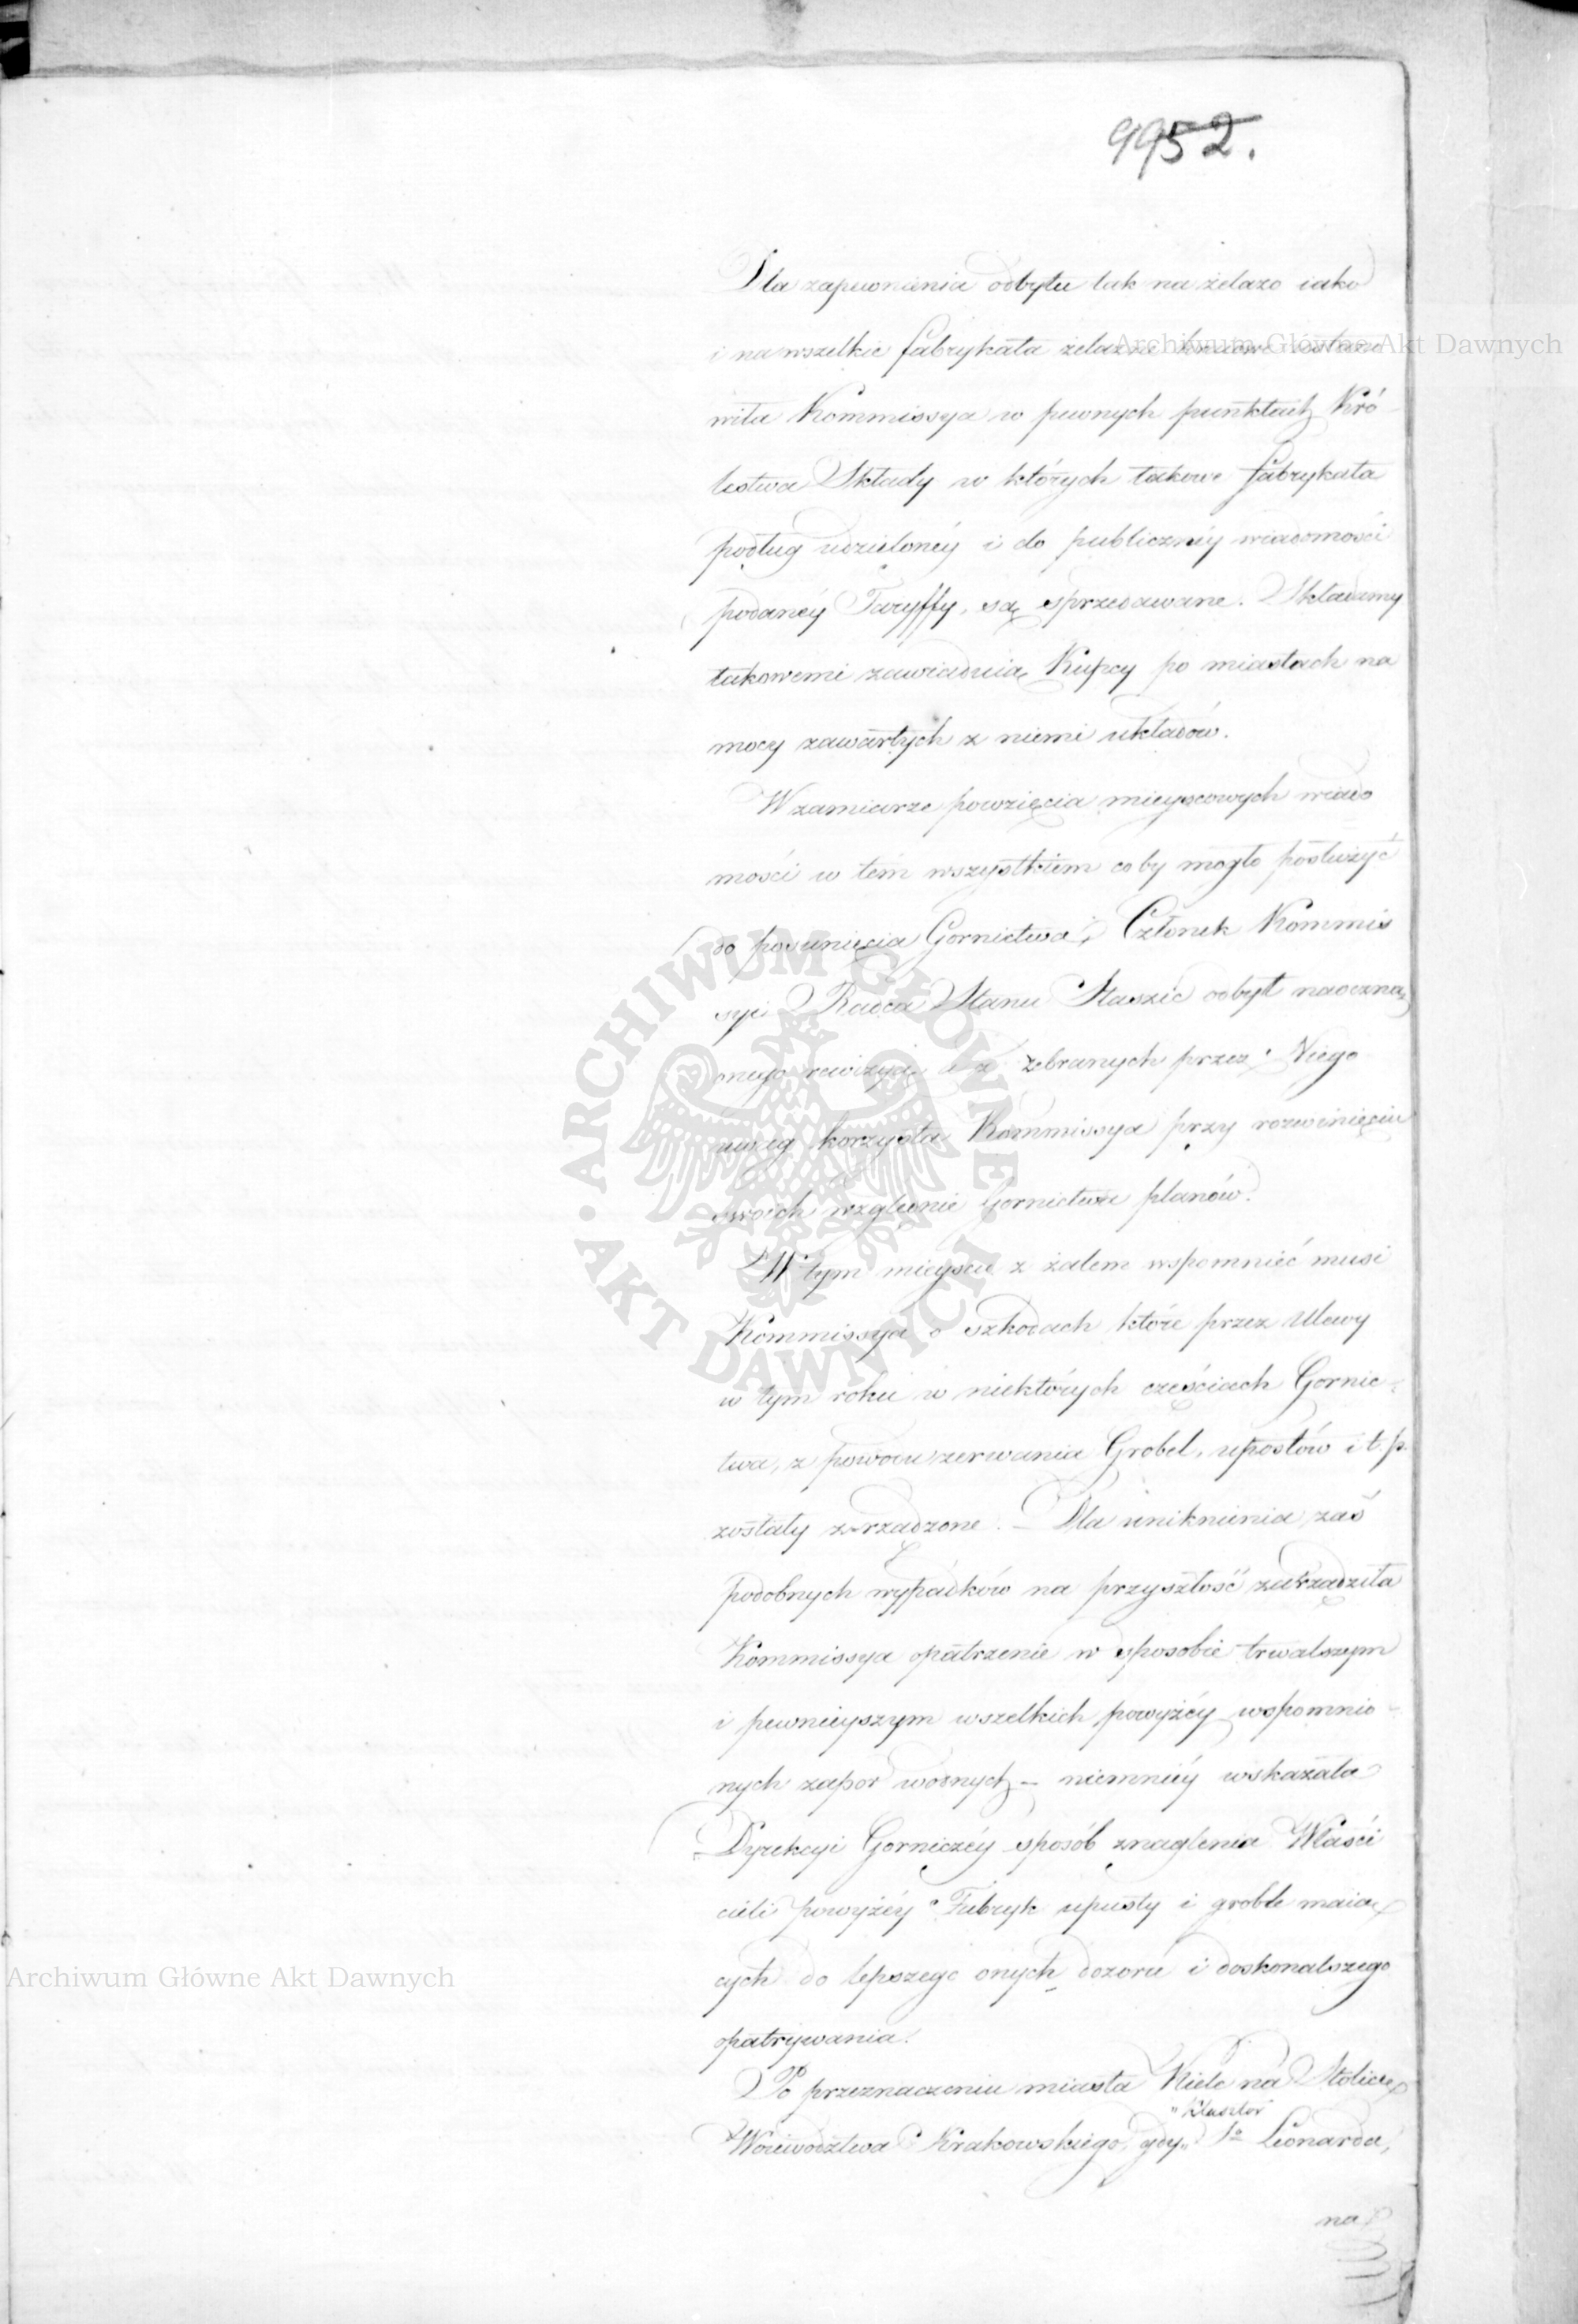 9952.
Dla zapewnienia odbytu tak na żelazo iako
i na wszelkie fabrykata żelazne kraiowe ustano
wiła Kommissya w pewnych punktach Kró-
lestwa Składy w których takowe fabrykata
podług udzielonéy i do publicznéy wiadomości
podanéy Taryffy, są sprzedawane. Składamy
takowemi zawiaduią Kupcy po miastach na
mocy zawartych z niemi układów.
W zamiarze powzięcia mieyscowych wiado
mości w tém wszystkiem co by mogło posłużyć
do posunięcia Gornictwa, Członek Kommis
syi Radca Stanu Staszic odbył naoczną
onego rewizyią, a z zebranych przez Niego
uwag korzysta Kommissya przy rozwinięciu
swoich względnie Gornictwa planów.
W tym mieyscu z żalem wspomnieć musi
Kommissya o szkodach które przez Ulewy
w tym roku w niektórych częściach Gornic-
twa, z powodu zerwania Grobel, upustów i t. p.
zostały zrządzone. – Dla uniknienia zaś
podobnych wypadków na przyszłość zarządziła
Kommissya opatrzenie w sposobie trwalszym
i pewnieyszym wszelkich powyżéy wspomnio-
nych zapor wodnych – niemniéy wskazała
Dyrekcyi Gorniczéy sposób znaglenia Właści
cieli powyżéy Fabryk upusty i groble maią
cych do lepszego onych dozoru i doskonalszego
opatrywania.
Po przeznaczeniu miasta Kielc na Stolicę
"Klasztor
Woiewództwa Krakowskiego, gdy" So Leonarda,
na
Archiwum Główne Akt Dawnych
Archiwum Główne Akt Dawnych
ARCHIWUM GŁÓWNE • AKT DAWNYCH •